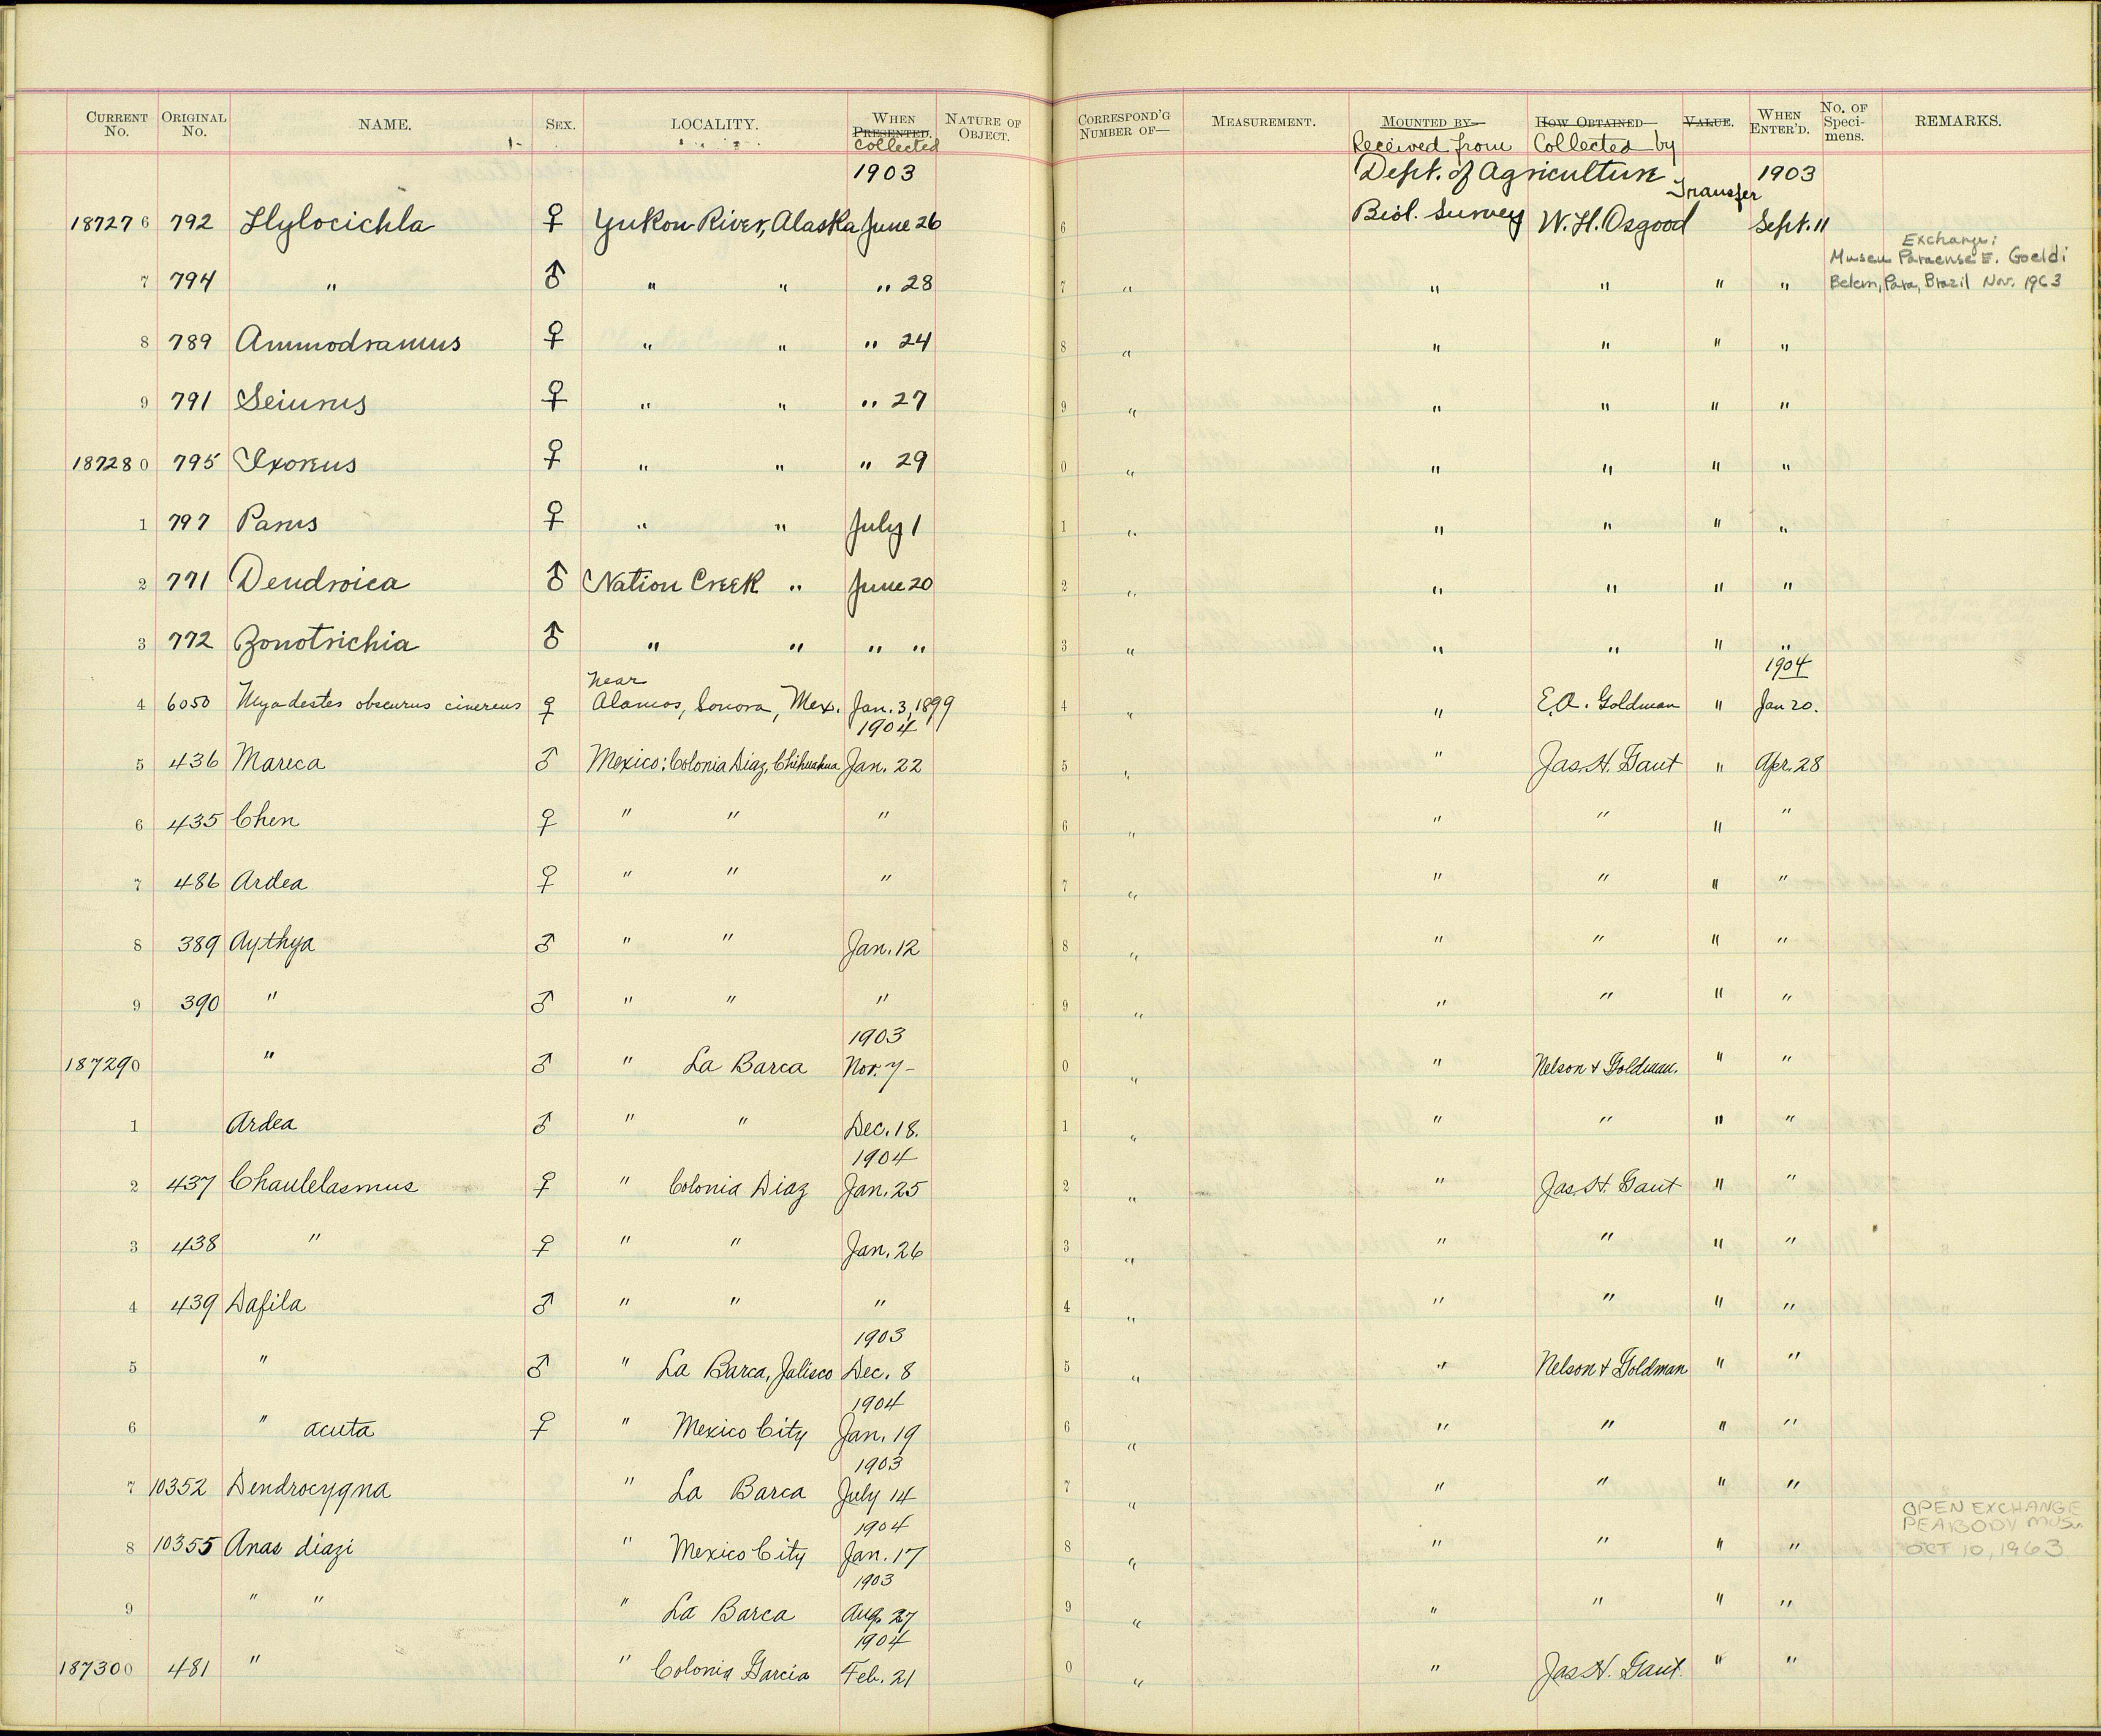 CURRENT No. ORIGINAL No. NAME. SEX. LOCALITY. WHEN PRESENTED. Collected NATURE OF OBJECT. CORRESPOND'G NUMBER OF— MEASUREMENT. MOUNTED BY— Received from HOW OBTAINED— Collected by VALUE. WHEN ENTER'D. No. OF Specimens. REMARKS.
1903 Dept. of Agriculture Transfer 1903
187276 792 Hylocichla ♀ Yukon River, Alaska June 26 6 Biol. Survey W. H. Osgood Sept. 11
7 794 " ♂ " " " 28 7 " " " " " Exchange: Museu Paraense E. Goeldi Belem, Para, Brazil Nov. 1963
8 789 Ammodramus ♀ " " " 24 8 " " " " "
9 791 Seiurus ♀ " " " 27 9 " " " " "
187280 795 Ixoreus ♀ " " " 29 0 " " " " "
1 797 Parus ♀ " " July 1 1 " " " " "
2 771 Dendroica ♂ Nation Creek " June 20 2 " " " " "
3 772 Zonotrichia ♂ " " " " 3 " " " " "
4 6050 Myadestes obscurus cinereus ♀ near Alamos, Sonora, Mex. Jan. 3, 1899 4 " " E. A. Goldman " 1904 Jan 20.
1904
5 436 Mareca ♂ Mexico: Colonia Diaz, Chihuahua Jan. 22 5 " " Jas. H. Gaut " Apr. 28
6 435 Chen ♀ " " " 6 " " " " "
7 486 Ardea ♀ " " " 7 " " " " "
8 389 Aythya ♂ " " Jan. 12 8 " " " " "
9 390 " ♂ " " " 9 " " " " "
1903
187290 " ♂ " La Barca Nov. 7– 0 " " Nelson & Goldman. " "
1 Ardea ♂ " " Dec. 18. 1 " " " " "
1904
2 437 Chaulelasmus ♀ " Colonia Diaz Jan. 25 2 " " Jas. H. Gaut " "
3 438 " ♀ " " Jan. 26 3 " " " " "
4 439 Dafila ♂ " " " 4 " " " " "
1903
5 " ♂ " La Barca, Jalisco Dec. 8 5 " " Nelson & Goldman " "
1904
6 " acuta ♀ " Mexico City Jan. 19 6 " " " " "
1903
7 10352 Dendrocygna " La Barca July 14 7 " " " " "
1904
8 10355 Anas diazi " Mexico City Jan. 17 8 " " " " " OPEN EXCHANGE PEABODY MUS. OCT 10, 1963
1903
9 " " " La Barca Aug. 27 9 " " " " "
1904
187300 481 " " Colonia Garcia Feb. 21 0 " " Jas. H. Gaut. " "